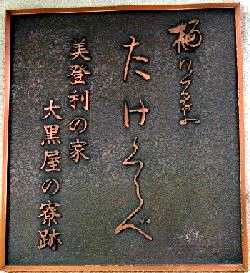 たけくらべ
美登利の家
大黒屋の寮跡